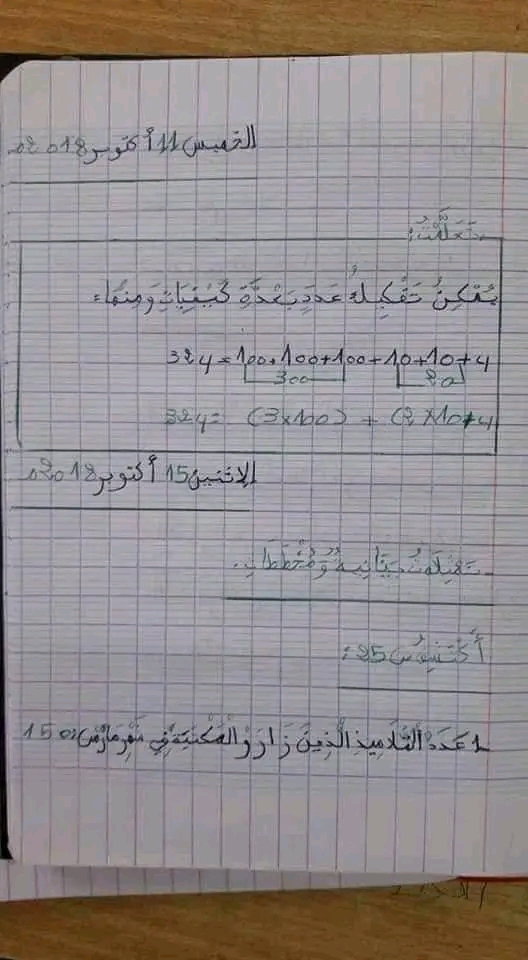 الخميس 11 أكتوبر 2018م
تَعَلَّمْتُ:
يُمْكِنُ تَفْكِيكُ عَدَدٍ بَعْدَّةِ كَيْفِيَّاتٍ وَمِنْهَا:
324 = 100+100+100+10+10+4
300 20
324= (3×100) + (2×10+4
الإثنين 15 أكتوبر 2018م
تَمْثِيلَاتٌ بَيَانِيَةٌ وَمُخَطَّطَاتٌ.
أَكْتَشِفُ ص 25:
1 عَدَدُ التَّلَامِيذِ الَّذِينَ زَارُوا الْمَكْتَبَةَ فِي شَهْرِ مَارْسْ: 150